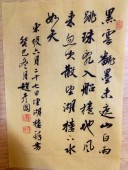 黑雲翻墨未遮山白雨
跳珠亂入船捲地風
來忽吹散望湖樓下水
如天
東坡六月二十七日望湖樓醉書
癸巳冬月趙